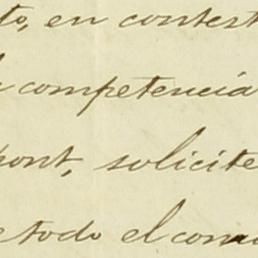 to, en contest
competencia
pont, solicite
todo el com